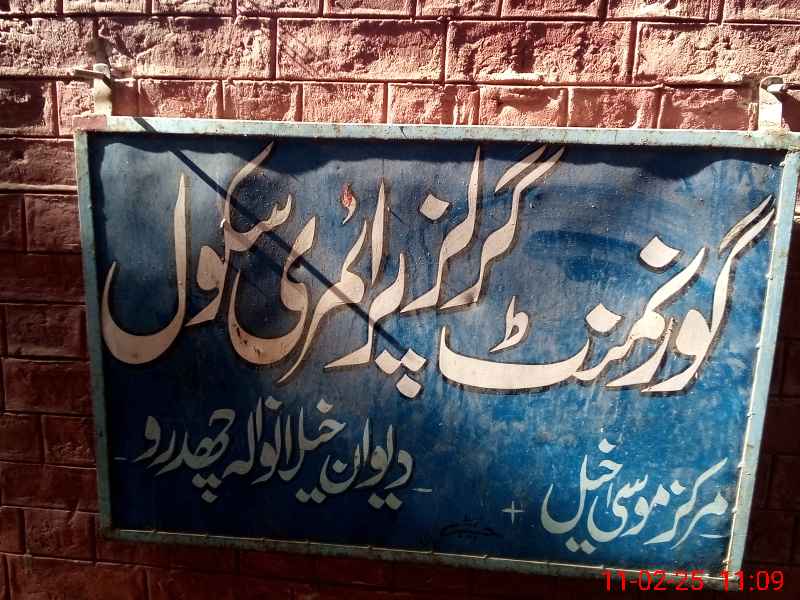 گورنمنٹ گرلز پرائمری سکول
مرکز موسیٰ خیل + دیوان خیلانوالہ چھدرو
11-02-25 11:09